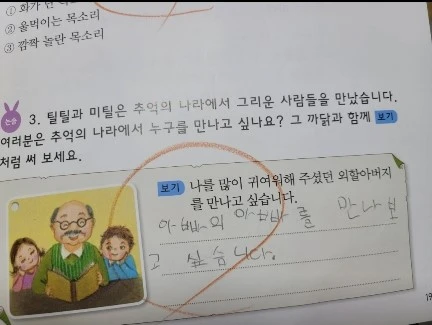 ① 화가 난 목소리
② 울먹이는 목소리
③ 깜짝 놀란 목소리
논술 3. 틸틸과 미틸은 추억의 나라에서 그리운 사람들을 만났습니다.
여러분은 추억의 나라에서 누구를 만나고 싶나요? 그 까닭과 함께 보기
처럼 써 보세요.
보기 나를 많이 귀여워해 주셨던 외할아버지
를 만나고 싶습니다.
아빠의 아빠를 만나보
고 싶습니다.